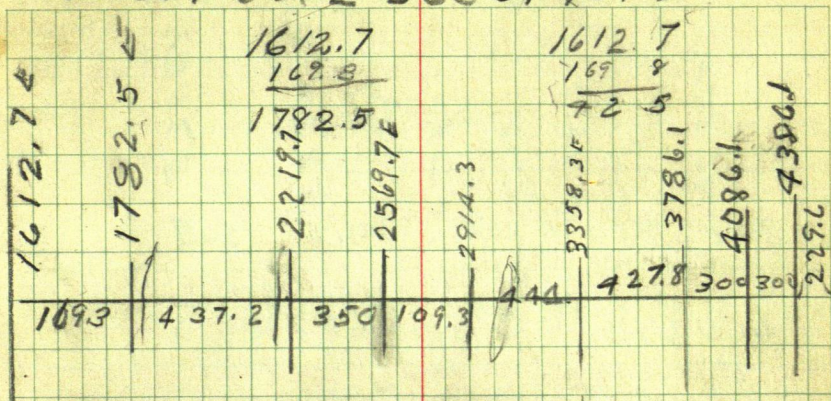 1612.7
169.8
1782.5
1612.7
169 8
4 2 5
1612.7 E
1782.5 E
2219.7
2569.7 E
2914.3
3358.3 E
3786.1
4086.1
4386.1
229.6
169.3
437.2
350
109.3
444
427.8
300
300